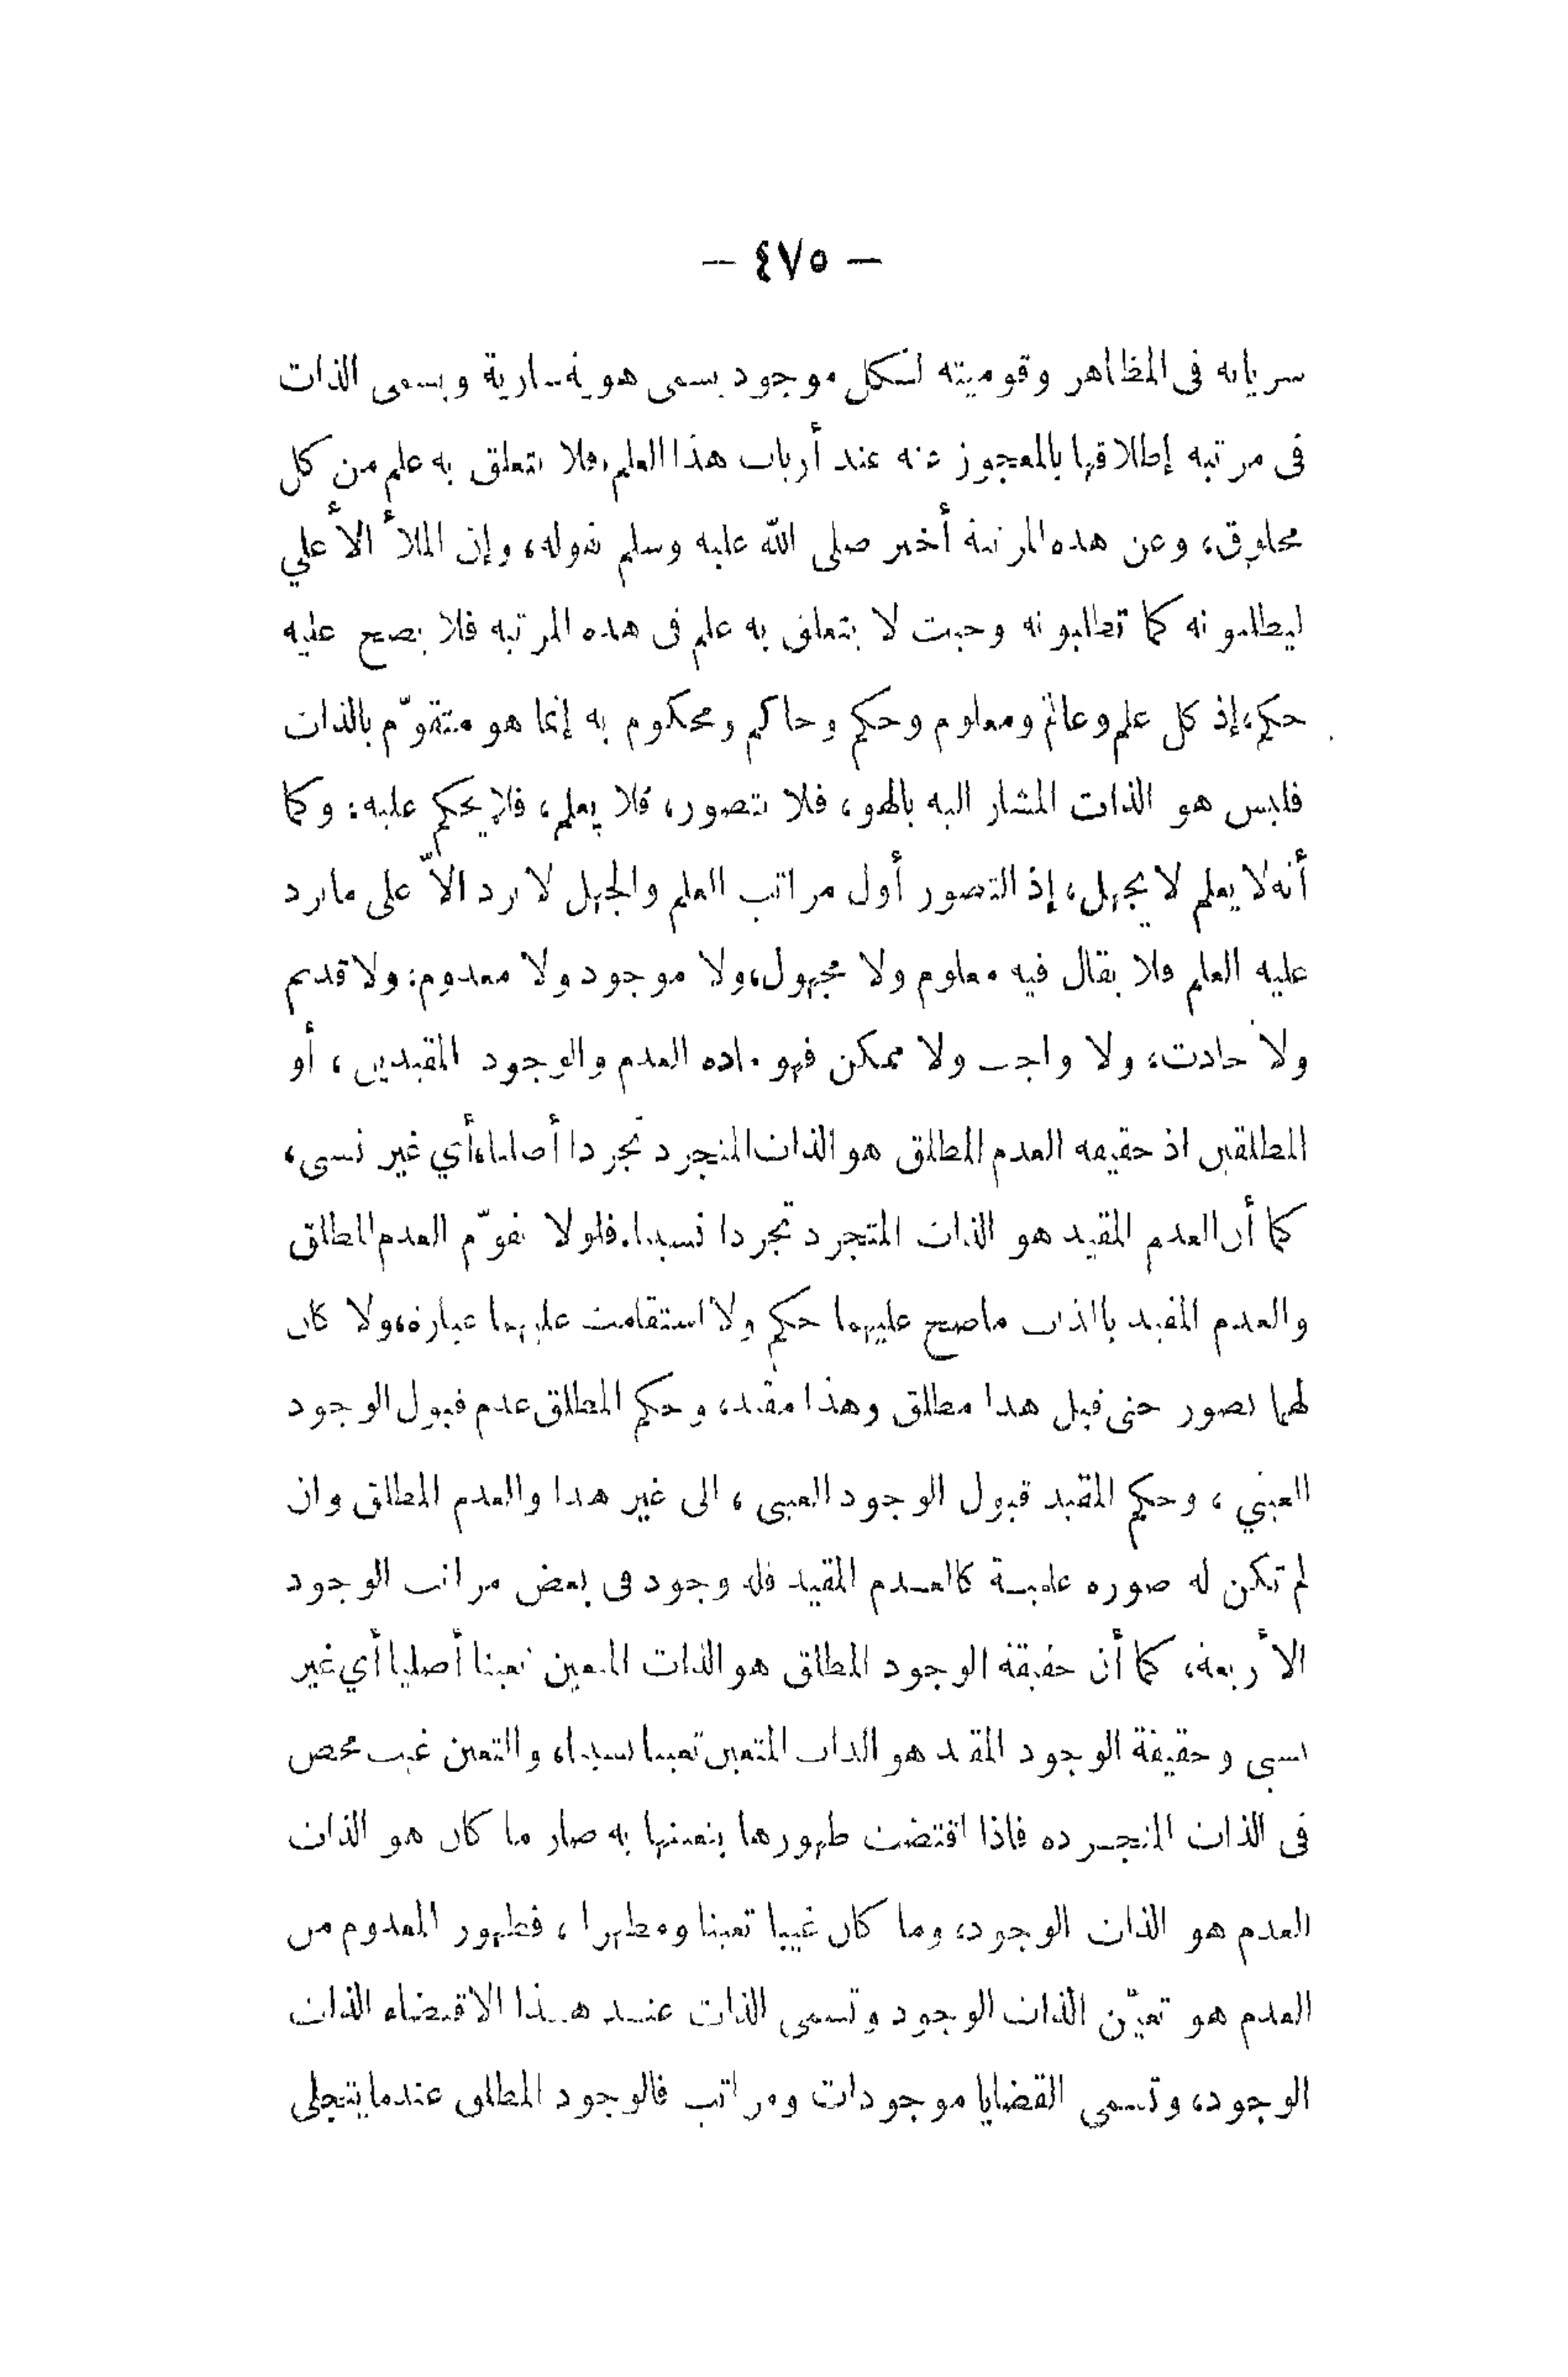 — ٤٧٥ —
سريانه فى المظاهر وقوميته لكل موجود يسمى هوية سارية ويسمى الذات
فى مرتبة إطلاقها بالمعجوز عنه عند أرباب هذا العلم، فلا يتعلق به علم من كل
مخلوق، وعن هذه المرتبة أخبر صلى الله عليه وسلم بقوله، وإن الملأ الأعلي
ليطلبونه كما تطلبونه وحيث لا يتعلق به علم فى هذه المرتبة فلا يصح عليه
حكم، إذ كل علم وعالم ومعلوم وحكم وحاكم ومحكوم به إنما هو متقوّم بالذات
فليس هو الذات المشار اليه بالهو، فلا يتصور، فلا يعلم، فلا يحكم عليه: وكما
أنه لا يعلم لا يجهل، إذ التصور أول مراتب العلم والجهل لا يرد الاّ على ما يرد
عليه العلم فلا يقال فيه معلوم ولا مجهول، ولا موجود ولا معدوم: ولا قديم
ولا حادث، ولا واجب ولا ممكن فهو مادة العدم والوجود المقيدين، أو
المطلقين اذ حقيقة العدم المطلق هو الذات المتجرد تجردا أصليا، أي غير نسبى،
كما أن العدم المقيد هو الذات المتجرد تجردا نسبيا. فلولا تقوّم العدم المطلق
والعدم المقيد بالذات ما صح عليهما حكم ولا استقامت عليهما عبارة، ولا كان
لهما تصور حتى قيل هذا مطلق وهذا مقيد، وحكم المطلق عدم قبول الوجود
العيني، وحكم المقيد قبول الوجود العينى، الى غير هذا والعدم المطلق وان
لم تكن له صورة علمية كالعدم المقيد فله وجود فى بعض مراتب الوجود
الأربعة، كما أن حقيقة الوجود المطلق هو الذات المتعين تعينا أصليا أي غير
نسبى وحقيقة الوجود المقيد هو الذات المتعين تعينا نسبيا، والتعين غيب محض
فى الذات المتجردة فاذا اقتضت ظهورها بتعينها به صار ما كان هو الذات
العدم هو الذات الوجود، وما كان غيبا تعينا ومظهرا، فظهور المعدوم من
العدم هو تعيّن الذات الوجود وتسمى الذات عند هذا الاقتضاء الذات
الوجود، وتسمى القضايا موجودات ومراتب فالوجود المطلق عندما يتجلى